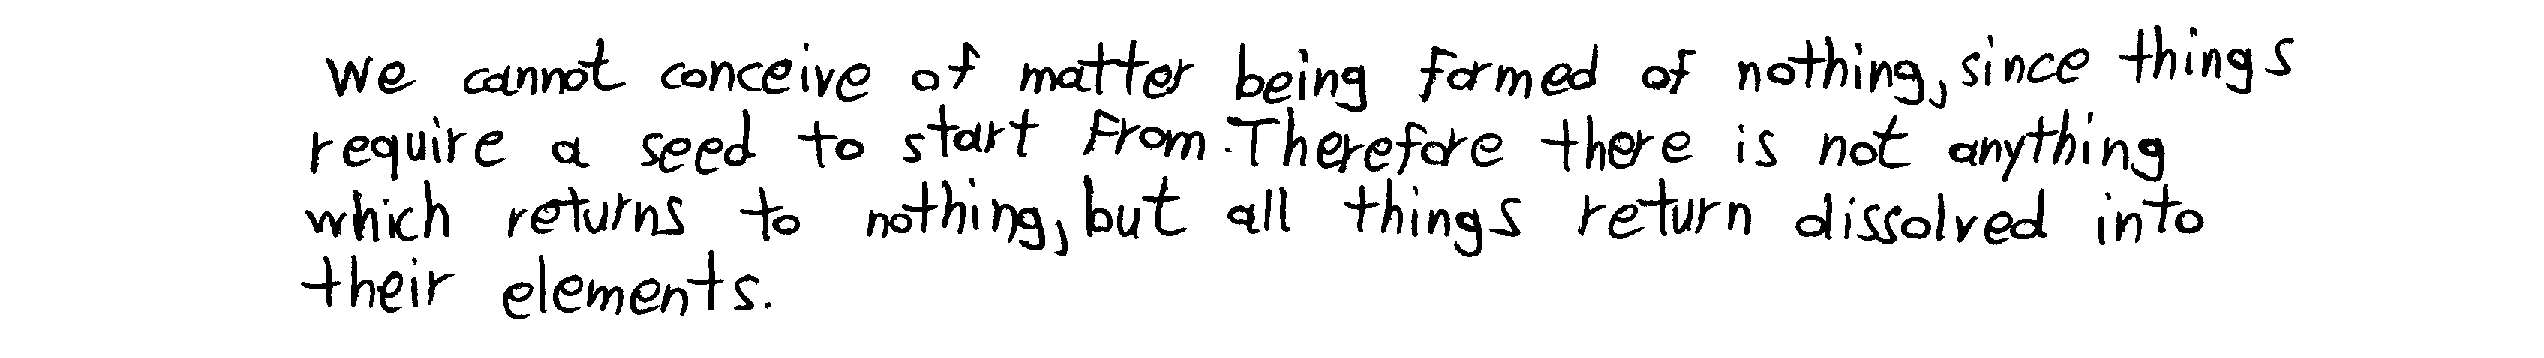 We cannot conceive of matter being formed of nothing, since things
require a seed to start from. Therefore there is not anything
which returns to nothing, but all things return dissolved into
their elements.